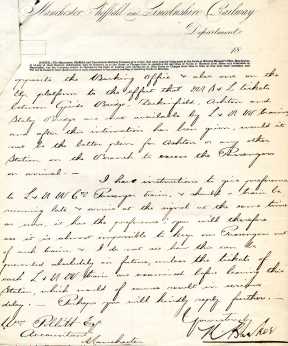 Manchester Sheffield and Lincolnshire Railway
Department
18
opposite the Booking Office & also one on the
Up platform to the effect that M S & L tickets
between Guide Bridge, Dukinfield, Ashton and
Staly Bridge are not available by L & N W trains
and after this intimation has been given, would it
not be the better plan for Ashton or any other
Station on the Branch to excess the Passengers
on arrival.—
I have instructions to give preference
to L & N W Co Passenger trains, & should a train be
running late & arrive at the signal at the same time
as ours, it has the preference, you will therefore
see it is almost impossible to keep our Passengers out
of such trains & I do not see how this can be
prevented absolutely in future, unless the tickets of
each L & N W train are examined before leaving this
Station, which would of course result in serious
delay.— Perhaps you will kindly reply further.—
Wm Pollitt Esq
Accountant
Manchester
Yours truly